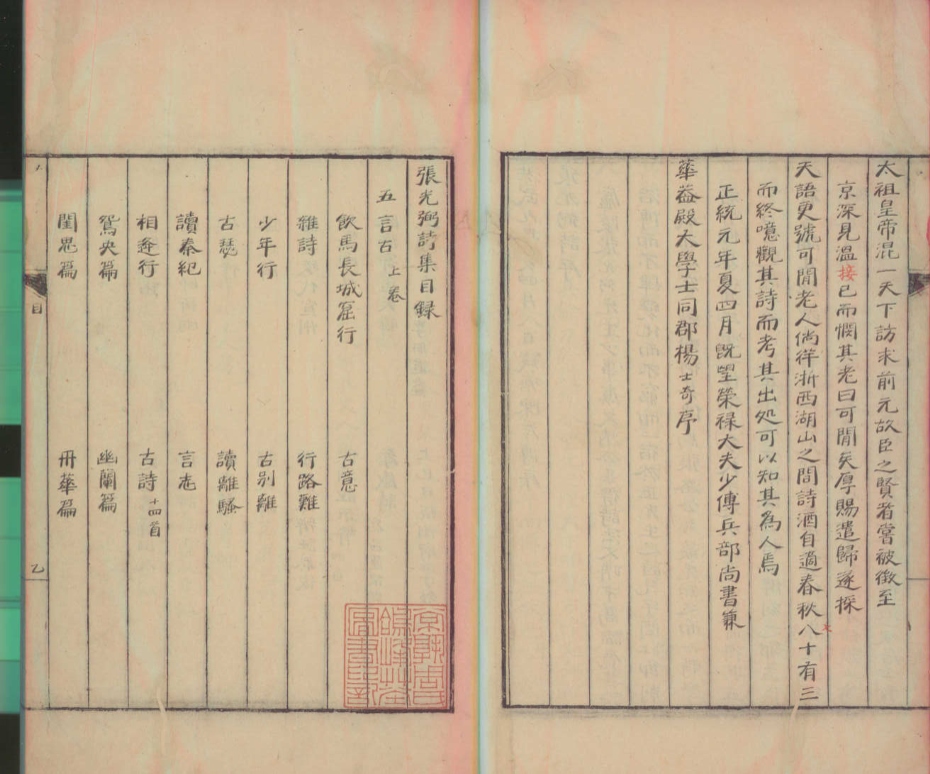 太祖皇帝混一天下訪求前元故臣之賢者嘗被徵至
京深見溫接已而憫其老曰可閒矣厚賜遣歸遂採
天語更號可閒老人倘徉浙西湖山之間詩酒自適春秋八十有三
而終噫觀其詩而考其出処可以知其為人焉
正統元年夏四月既望榮祿大夫少傅兵部尚書兼
華蓋殿大學士同郡楊士奇序
張光弼詩集目録
五言古 上卷
飲馬長城窟行 古意
雜詩 行路難
少年行 古別離
古瑟 讀離騷
讀秦紀 言志
相逢行 古詩 十四首
鴛央篇 幽蘭篇
閨思篇 冊華篇
目
乙